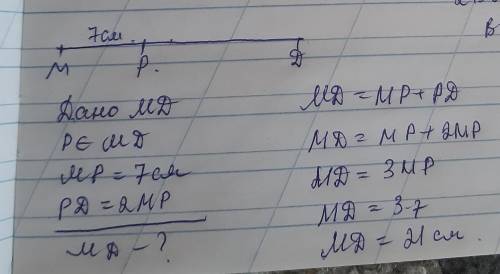 7см
М Р. D
В
Дано MD
P∈MD
MP = 7см
PD = 2MP
MD - ?
MD = MP + PD
MD = MP + 2MP
MD = 3MP
MD = 3·7
MD = 21 см.